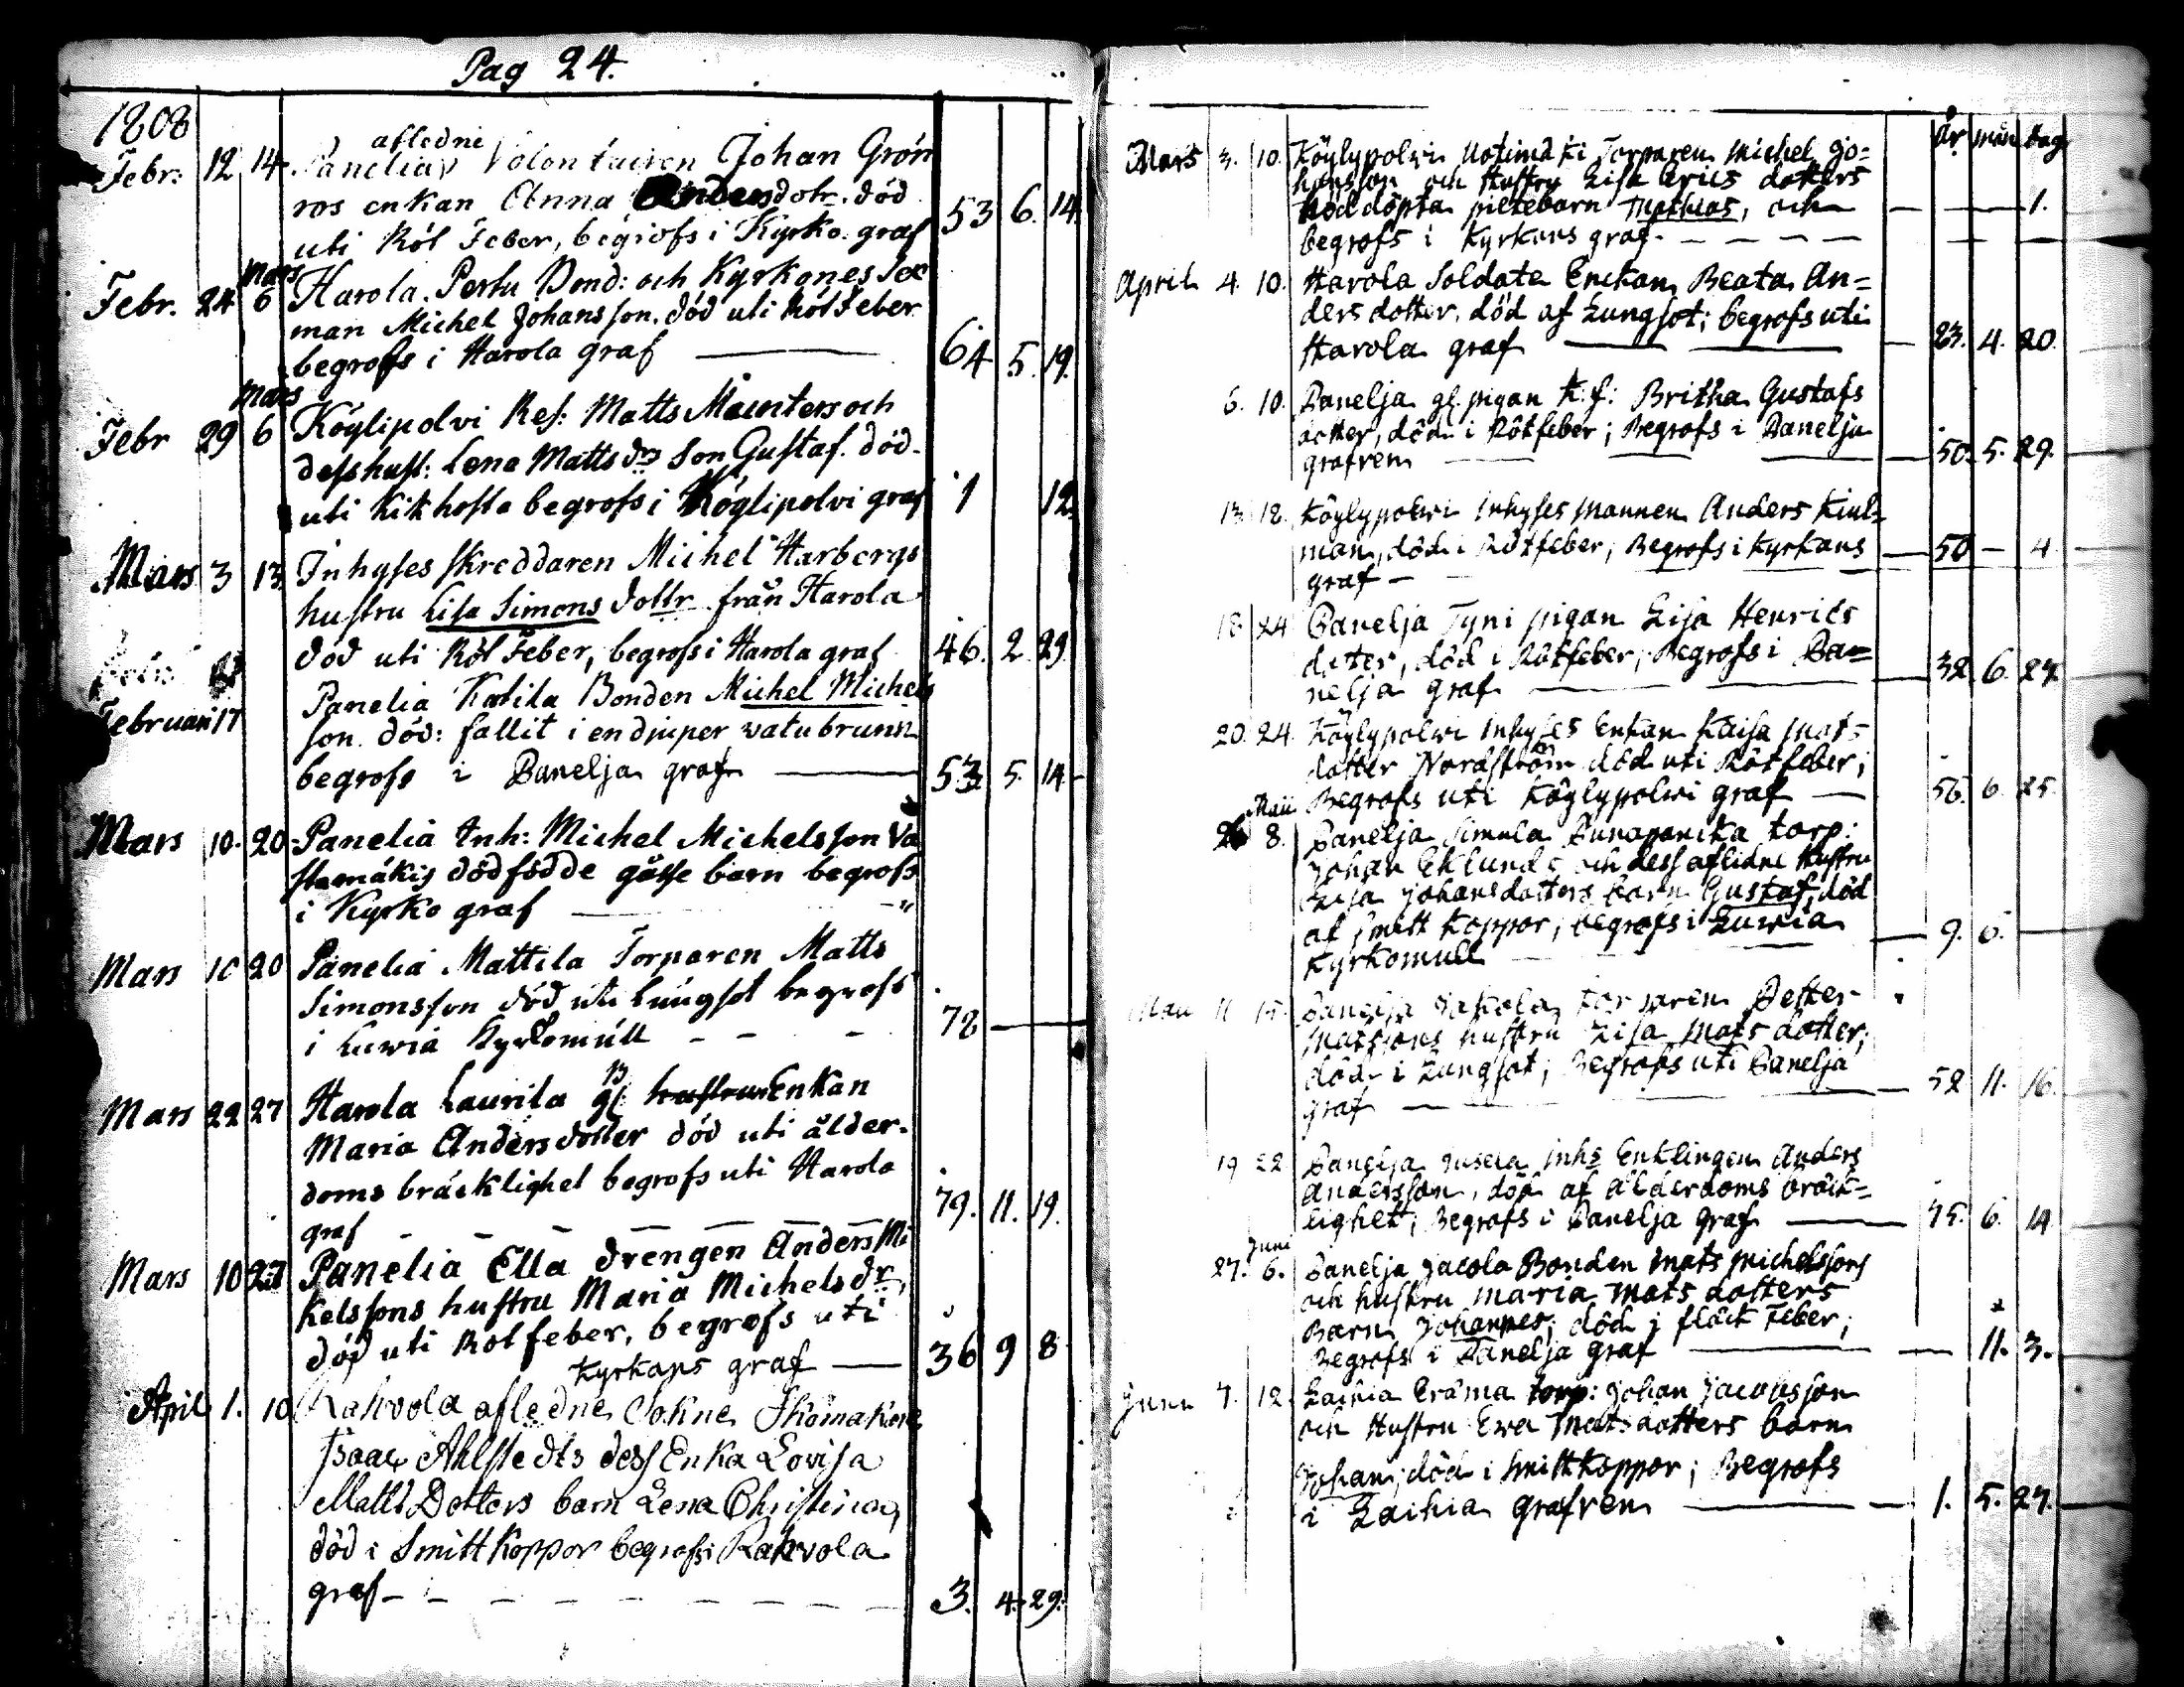 Pag 24.
1808
Febr: 12 14 Panelia afledne Volontairen Johan Grön
ros enkan Anna Andersdotr. död
uti Röt Feber, begrofs i Kyrko graf 53 6. 14.
Febr. 24 Mars 6 Harola Pertu Bond: och Kyrkones Sex
man Michel Johansson. död uti Röt Feber
begrofs i Harola graf 64 5. 19.
Febr 29 Mars 6 Köylipolvi Ref: Matts Maunters och
dess hust: Lena Matts drs Son Gustaf. död
uti Kikhosta begrofs i Köylipolvi graf 1 12.
Mars 3 13 Inhyses skreddaren Michel Harbergs
hustru Lisa Simons dottr från Harola
död uti Röt Feber, begrofs i Harola graf 46. 2. 29.
Februari 17 Panelia Katila Bonden Michel Michels
son. död: fallit i en djuper vatubrunn
begrofs i Panelja graf 53 5. 14
Mars 10. 20 Panelia Inh: Michel Michelsson Va
stamäkis dödfödde gåsse barn begrofs
i Kyrko graf
Mars 10 20 Panelia Mattila Torparen Matts
Simonsson död uti Lungsot begrofs
i Luwia Kyrkomull 78
Mars 22 27 Harola Laurila gl. hustrun Enkan
Maria Anders dotter död uti ålder-
doms bräcklighet begrofs uti Harola
graf 79. 11. 19.
Mars 10 27 Panelia Ella drengen Anders Mi
kelssons hustru Maria Michels dr,
död uti Rotfeber, begrofs uti
Kyrkans graf 36 9 8
April 1. 10 Rahvola afledne Sokne Skomakare
Isaac Ahlstedts dess Enka Lovisa
Matts Dotters barn Lena Christina,
död i Smitt Koppor begrofs i Rahvola
graf 3. 4. 29.
År mån dag
Mars 3. 10. Köylypolwi Torparen Michel Jo=
hansson och Hustru Lisa Erics dotters
Nöddöpta piltebarn Mathias, och
begrofs i Kyrkans graf. 1.
April 4. 10. Harola Soldate Enckan Beata An=
ders dotter, död af Lungsot; begrofs uti
Harola graf 23. 4. 20.
6. 10. Panelja gl. pigan K:f: Britha Gustafs
dotter, död i Rötfeber; Begrofs i Panelja
grafven 50. 5. 29.
13. 18. Köylypolwi Inhyses mannen Anders Kiul-
man, död i Rötfeber, Begrofs i Kyrkans
graf 50 4
18. 24 Panelja Tyni pigan Lisa Henrics
dotter, död i Rötfeber, Begrofs i Pa=
nelja graf 32 6. 27.
20. 24. Köylypolwi Inhyses Enkan Kaisa Mats
dotter Nordström död uti Rötfeber;
Begrofs uti Köylypolwi graf 56. 6. 25.
Maii 8. Panelja Simula torp:
Johan Eklunds och dess aflidne Hustru
Lisa Johansdotters barn Gustaf, död
af smitt koppor; begrofs i Luwia
Kyrkomull 9. 6.
Maii 11 15. Panelja Jakola torparen Petter
Matssons hustru Lisa Mats dotter;
död i Lungsot; Begrofs uti Panelja
graf 52 11. 16.
19 22 Panelja inhs Enklingen Anders
Andersson, död af ålderdoms bräck=
lighet; Begrofs i Panelja graf 75. 6. 14
27. Juni 6. Panelja Jacola Bonden Mats Michelssons
och hustru Maria Mats dotters
Barn Johannes; död i fläck Feber;
Begrofs i Panelja graf 11. 3.
Junii 7. 12. Laihia Eräma torp: Johan Jacobsson
och Hustru Ewa Mats dotters barn
Johan; död i Smittkoppor; Begrofs
i Laihia grafven 1. 5. 27.